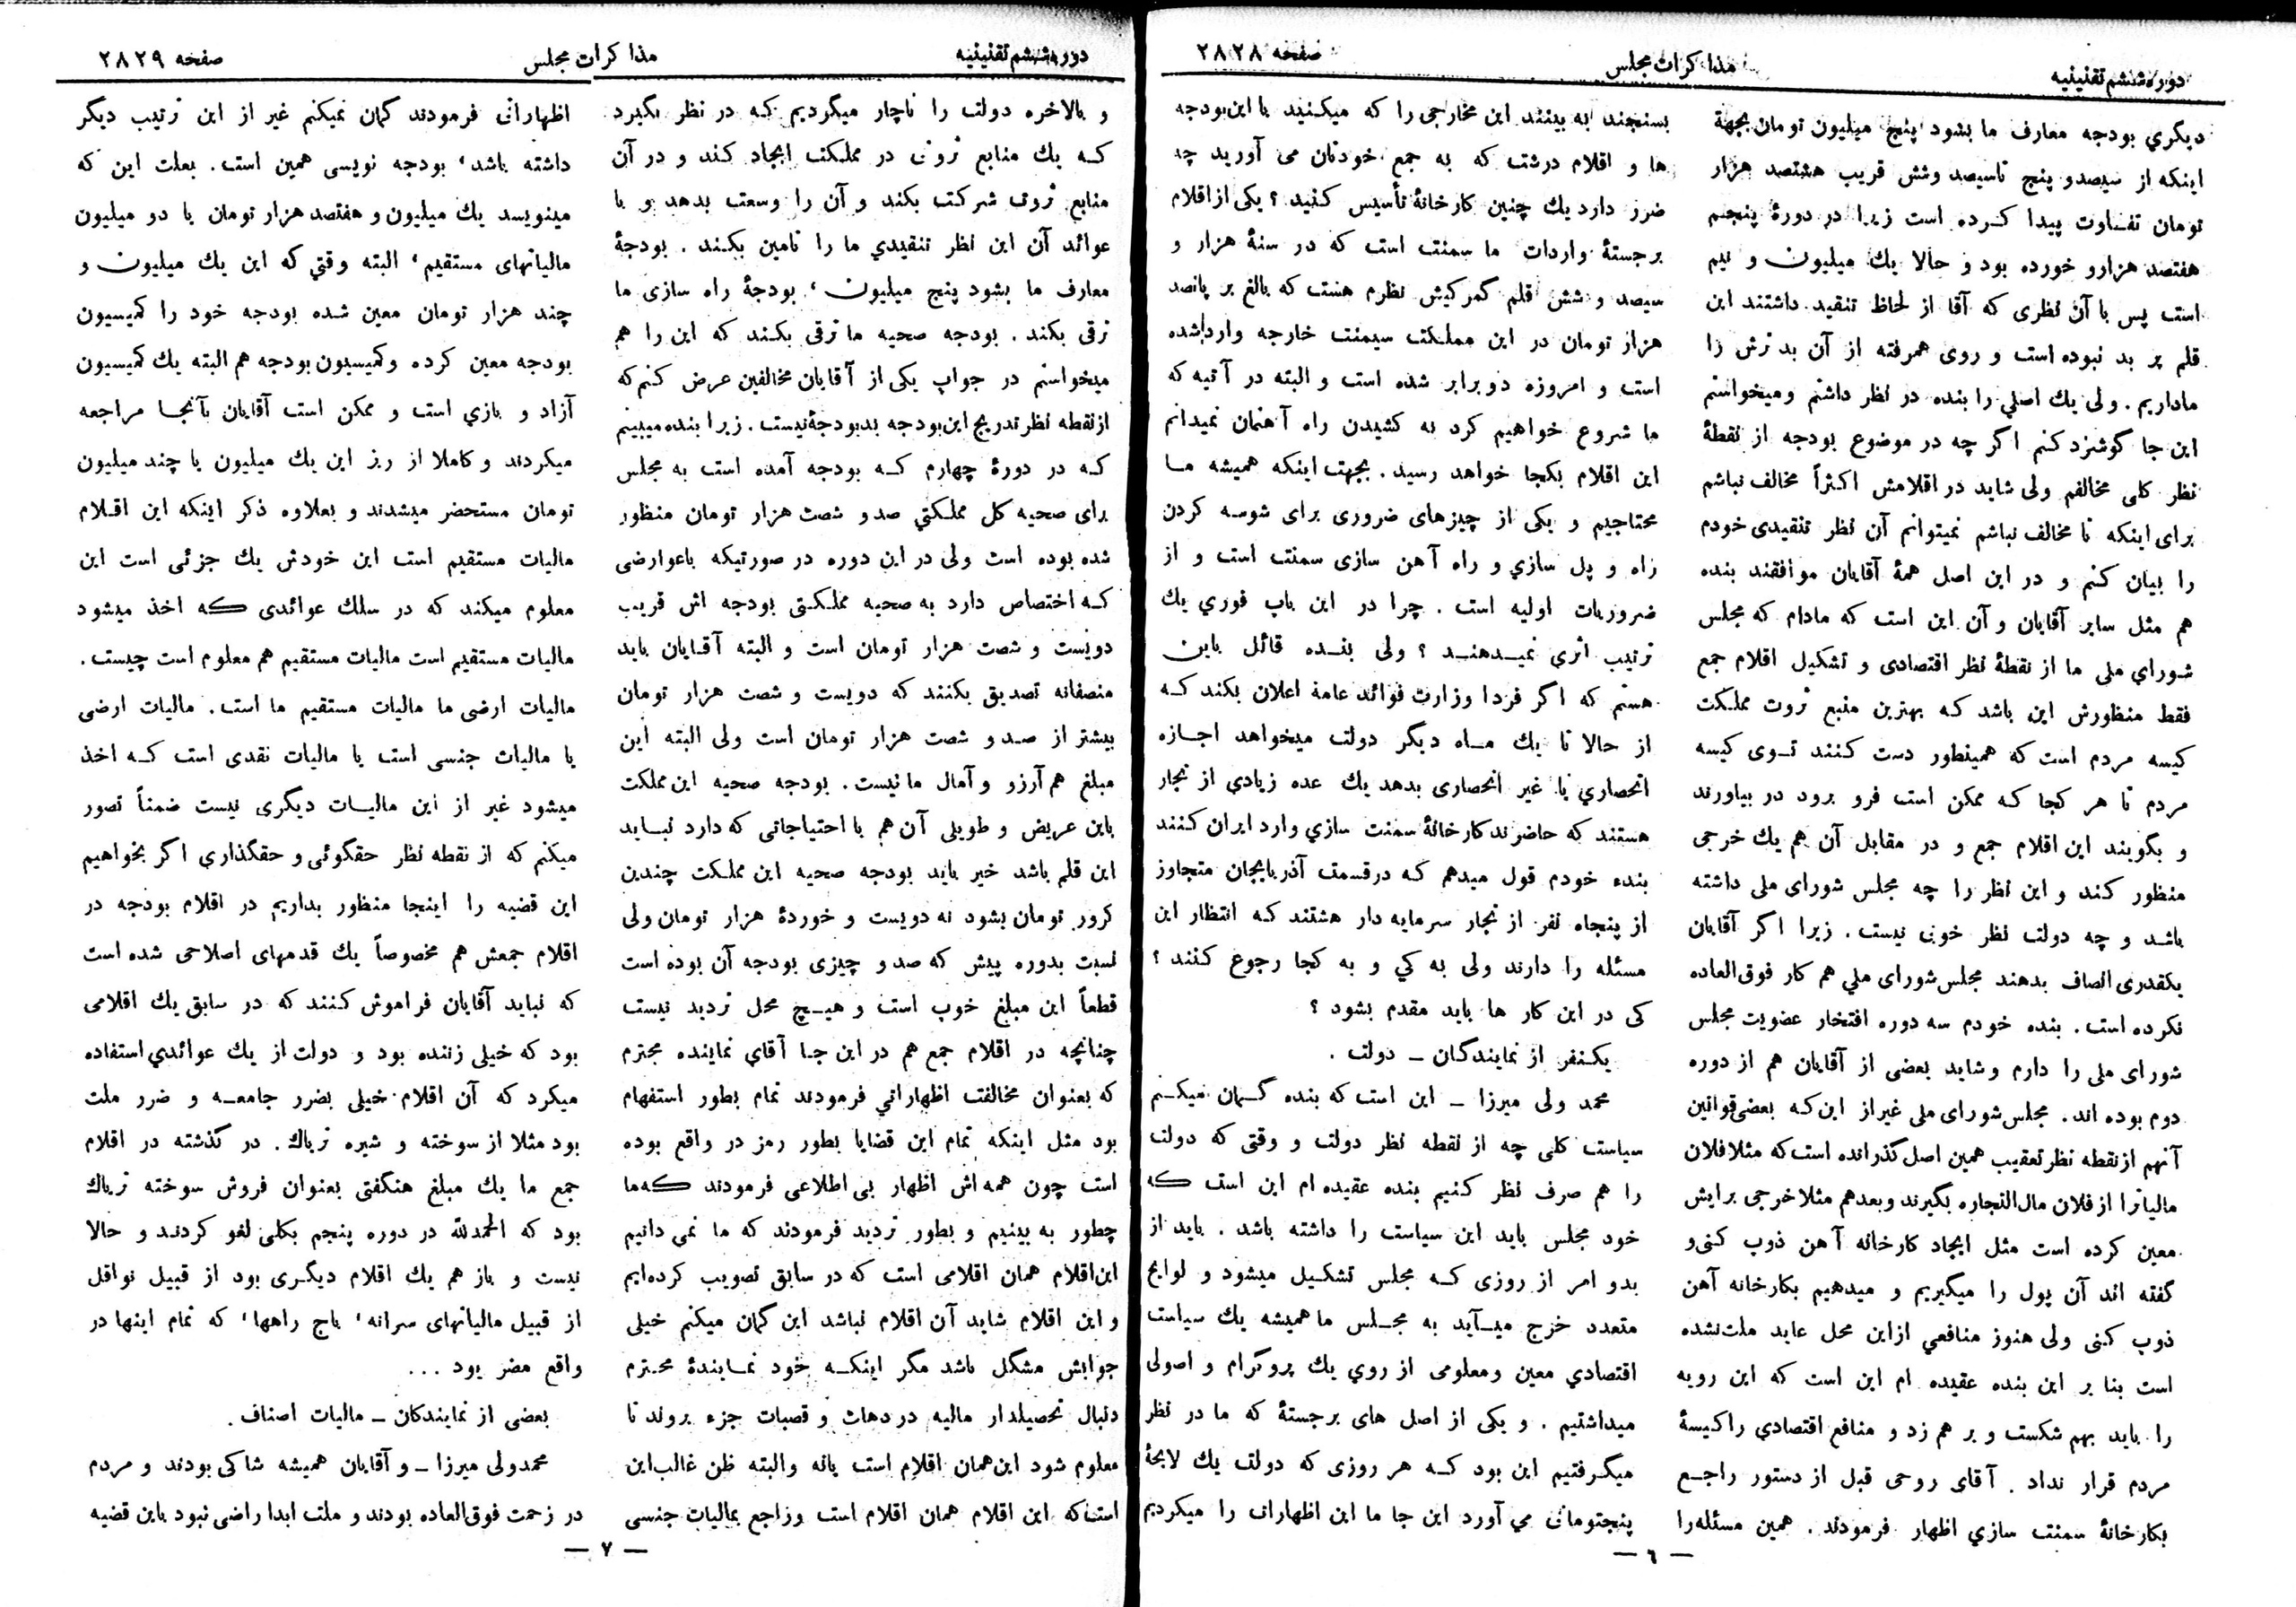 دوره ششم تقنینیه
مذاکرات مجلس
صفحه ۲۸۲۸
دیگري بودجه معارف ما بشود پنج میلیون تومان بجهة
اینکه از سیصدو پنج تاسیصد وشش قریب هشتصد هزار
تومان تفاوت پیدا کرده است زیرا در دورۀ پنجم
هفتصد هزارو خورده بود و حالا یك میلیون و نیم
است پس با آن نظری که آقا از لحاظ تنقید داشتند این
قلم پر بد نبوده است و روی همرفته از آن بد ترش را
ماداریم. ولی یك اصلي را بنده در نظر داشتم ومیخواستم
این جا گوشزد کنم اگر چه در موضوع بودجه از نقطۀ
نظر کلی مخالفم ولی شاید در اقلامش اکثراً مخالف نباشم
برای اینکه تا مخالف نباشم نمیتوانم آن نظر تنقیدی خودم
را بیان کنم و در این اصل همۀ آقایان موافقند بنده
هم مثل سایر آقایان و آن این است که مادام که مجلس
شورای ملی ما از نقطۀ نظر اقتصادی و تشکیل اقلام جمع
فقط منظورش این باشد که بهترین منبع ثروت مملکت
کیسه مردم است که همینطور دست کنند توی کیسه
مردم تا هر کجا که ممکن است فرو برود در بیاورند
و بگویند این اقلام جمع و در مقابل آن هم یك خرجی
منظور کند و این نظر را چه مجلس شورای ملی داشته
باشد و چه دولت نظر خوبی نیست. زیرا اگر آقایان
یکقدری انصاف بدهند مجلس شورای ملي هم کار فوق العاده
نکرده است. بنده خودم سه دوره افتخار عضویت مجلس
شورای ملی را دارم و شاید بعضی از آقایان هم از دوره
دوم بوده اند. مجلس شورای ملی غیراز این که بعضی قوانین
آنهم ازنقطه نظر تعقیب همین اصل گذرانده است که مثلا فلان
مالیاترا از فلان مال التجاره بگیرند وبعدهم مثلا خرجی برایش
معین کرده است مثل ایجاد کارخانه آهن ذوب کنی و
گفته اند آن پول را میگیریم و میدهیم بکارخانه آهن
ذوب کنی ولی هنوز منافعي ازاین محل عاید ملت نشده
است بنا بر این بنده عقیده ام این است که این رویه
را باید بهم شکست و بر هم زد و منافع اقتصادي را کیسۀ
مردم قرار نداد. آقای روحی قبل از دستور راجع
بکارخانۀ سمنت سازي اظهار فرمودند. همین مسئله را
بسنجند به بینند این مخارجی را که میکنید با این بودجه
ها و اقلام درشت که به جمع خودتان می آورید چه
ضرر دارد یك چنین کارخانۀ تأسیس کنید؟ یکی از اقلام
برجستۀ واردات ما سمنت است که در سنۀ هزار و
سیصد و شش قلم گمرکیش نظرم هست که بالغ بر پانصد
هزار تومان در این مملکت سیمنت خارجه وارد شده
است و امروزه دو برابر شده است و البته در آتیه که
ما شروع خواهیم کرد به کشیدن راه آهنمان نمیدانم
این اقلام بکجا خواهد رسید. بجهت اینکه همیشه ما
محتاجیم و یکی از چیزهای ضروری برای شوسه کردن
راه و پل سازي و راه آهن سازی سمنت است و از
ضروریات اولیه است. چرا در این باب فوري یك
ترتیب اثری نمیدهند؟ ولی بنده قائل باین
هستم که اگر فردا وزارت فوائد عامه اعلان بکند که
از حالا تا یك ماه دیگر دولت میخواهد اجازه
انحصاري یا غیر انحصاری بدهد یك عده زیادي از تجار
هستند که حاضرند کارخانۀ سمنت سازي وارد ایران کنند
بنده خودم قول میدهم که در قسمت آذربایجان متجاوز
از پنجاه نفر از تجار سرمایه دار هستند که انتظار این
مسئله را دارند ولی به کي و به کجا رجوع کنند؟
کی در این کار ها باید مقدم بشود؟
یکنفر از نمایندگان ـ دولت.
محمد ولی میرزا ـ این است که بنده گمان میکنم
سیاست کلی چه از نقطه نظر دولت و وقتی که دولت
را هم صرف نظر کنیم بنده عقیده ام این است که
خود مجلس باید این سیاست را داشته باشد. باید از
بدو امر از روزی که مجلس تشکیل میشود و لوایح
متعدد خرج میآید به مجلس ما همیشه یك سیاست
اقتصادي معین ومعلومی از روي یك پروگرام و اصولی
میداشتیم. و یکی از اصل های برجستۀ که ما در نظر
میگرفتیم این بود که هر روزی که دولت یك لایحۀ
پنجتومانی می آورد این جا ما این اظهارات را میکردیم
— ٦ —
دوره ششم تقنینیه
مذاکرات مجلس
صفحه ۲۸۲۹
و بالاخره دولت را ناچار میگردیم که در نظر بگیرد
که یك منابع ثروتی در مملکت ایجاد کند و در آن
منابع ثروت شرکت بکند و آن را وسعت بدهد و با
عوائد آن این نظر تنقیدي ما را تامین بکند. بودجۀ
معارف ما بشود پنج میلیون، بودجۀ راه سازی ما
ترقی بکند. بودجه صحیه ما ترقی بکند که این را هم
میخواستم در جواب یکی از آقایان مخالفین عرض کنم که
از نقطه نظر تدریج این بودجه بد بودجۀ نیست. زیرا بنده میبینم
که در دورۀ چهارم که بودجه آمده است به مجلس
برای صحیه کل مملکتي صد و شصت هزار تومان منظور
شده بوده است ولی در این دوره در صورتیکه باعوارضی
که اختصاص دارد به صحیه مملکتی بودجه اش قریب
دویست و شصت هزار تومان است و البته آقایان باید
منصفانه تصدیق بکنند که دویست و شصت هزار تومان
بیشتر از صد و شصت هزار تومان است ولی البته این
مبلغ هم آرزو و آمال ما نیست. بودجه صحیه این مملکت
باین عریض و طویلی آن هم با احتیاجاتی که دارد نباید
این قلم باشد خیر باید بودجه صحیه این مملکت چندین
کرور تومان بشود نه دویست و خوردۀ هزار تومان ولی
نسبت بدوره پیش که صد و چیزی بودجه آن بوده است
قطعاً این مبلغ خوب است و هیچ محل تردید نیست
چنانچه در اقلام جمع هم در این جا آقای نماینده محترم
که بعنوان مخالفت اظهاراتي فرمودند تمام بطور استفهام
بود مثل اینکه تمام این قضایا بطور رمز در واقع بوده
است چون همه اش اظهار بی اطلاعی فرمودند که ما
چطور به بینیم و بطور تردید فرمودند که ما نمی دانیم
این اقلام همان اقلامی است که در سابق تصویب کرده ایم
و این اقلام شاید آن اقلام نباشد این گمان میکنم خیلی
جوابش مشگل باشد مگر اینکه خود نمایندۀ محترم
دنبال تحصیلدار مالیه در دهات و قصبات جزء بروند تا
معلوم شود این همان اقلام است یانه والبته ظن غالب این
است که این اقلام همان اقلام است وراجع بمالیات جنسی
اظهاراتی فرمودند گمان نمیکنم غیر از این ترتیب دیگر
داشته باشد، بودجه نویسی همین است. بعلت این که
مینویسد یك میلیون و هفتصد هزار تومان یا دو میلیون
مالیاتهای مستقیم، البته وقتي که این یك میلیون و
چند هزار تومان معین شده بودجه خود را کمیسیون
بودجه معین کرده وکمیسیون بودجه هم البته یك کمیسیون
آزاد و بازي است و ممکن است آقایان بآنجا مراجعه
میکردند و کاملا از ریز این یك میلیون یا چند میلیون
تومان مستحضر میشدند و بعلاوه ذکر اینکه این اقلام
مالیات مستقیم است این خودش یك جزئی است این
معلوم میکند که در سلك عوائدی که اخذ میشود
مالیات مستقیم است مالیات مستقیم هم معلوم است چیست.
مالیات ارضی ما مالیات مستقیم ما است. مالیات ارضی
یا مالیات جنسی است یا مالیات نقدی است که اخذ
میشود غیر از این مالیات دیگری نیست ضمناً تصور
میکنم که از نقطه نظر حقگوئی و حقگذاري اگر بخواهیم
این قضیه را اینجا منظور بداریم در اقلام بودجه در
اقلام جمعش هم مخصوصاً یك قدمهای اصلاحی شده است
که نباید آقایان فراموش کنند که در سابق یك اقلامی
بود که خیلی زننده بود و دولت از یك عوائدي استفاده
میکرد که آن اقلام خیلی بضرر جامعه و ضرر ملت
بود مثلا از سوخته و شیره تریاك. در گذشته در اقلام
جمع ما یك مبلغ هنگفتی بعنوان فروش سوخته تریاك
بود که الحمدلله در دوره پنجم بکلی لغو کردند و حالا
نیست و باز هم یك اقلام دیگری بود از قبیل نواقل
از قبیل مالیاتهای سرانه، باج راهها، که تمام اینها در
واقع مضر بود ...
بعضی از نمایندکان ـ مالیات اصناف.
محمدولی میرزا ـ و آقایان همیشه شاکی بودند و مردم
در زحمت فوق العاده بودند و ملت ابدا راضی نبود باین قضیه
— ۷ —